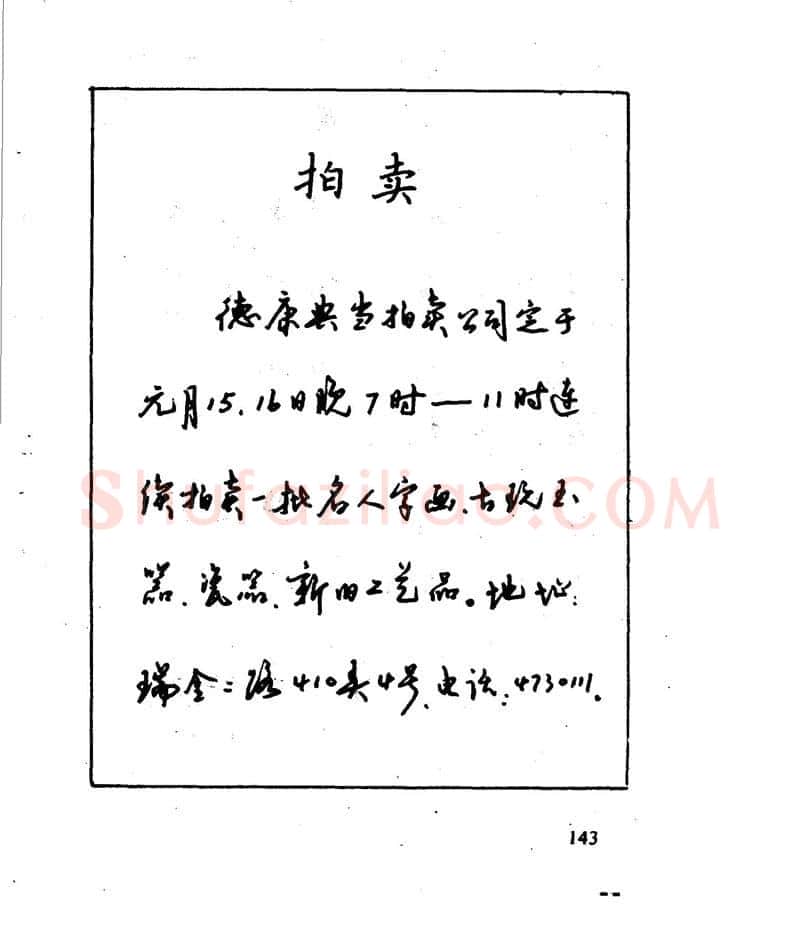 拍卖
德康典当拍卖公司定于
元月15.16日晚7时—11时连
续拍卖一批名人字画、古玩玉
器、瓷器、新旧工艺品。地址:
瑞金二路410弄4号、电话:4730111.
Shufaziliao.COM
143